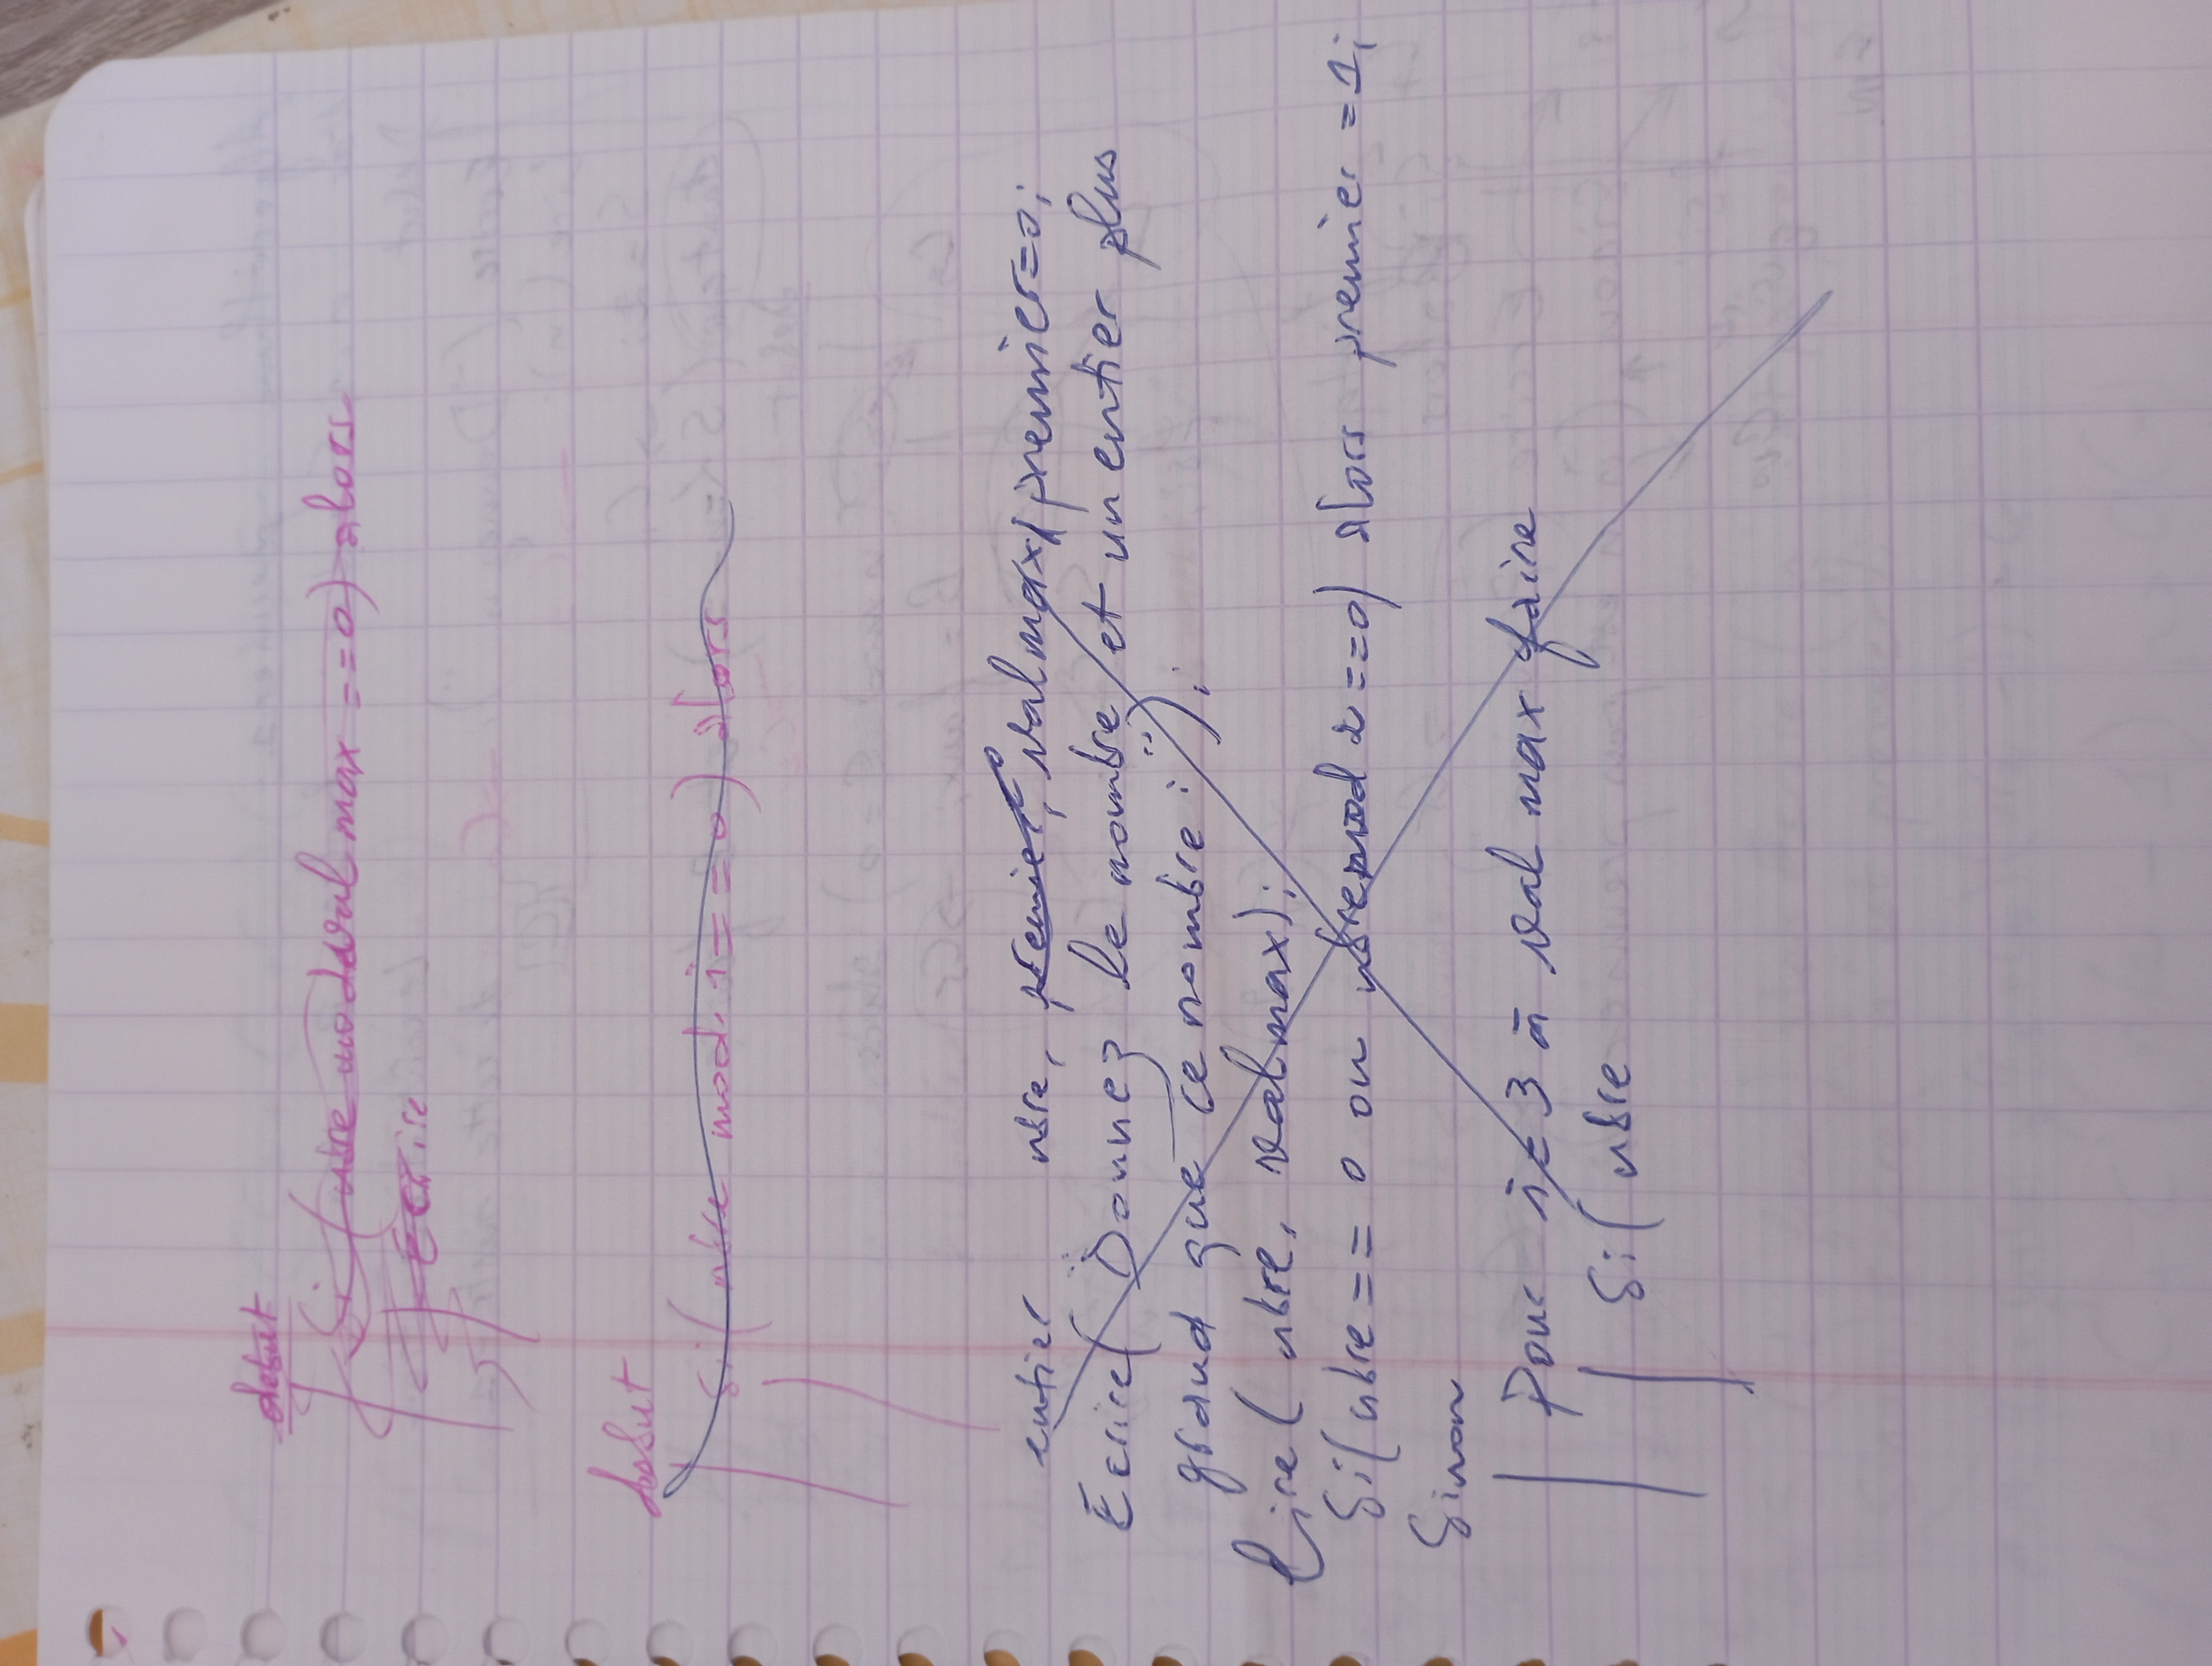 debut
Si (nbre mod val max ==0) alors
Ecrire
debut
Si (nbre mod i==0) alors
entier nbre, premier, valmax, premier=0;
Ecrire( "Donnez le nombre et un entier plus
grand que ce nombre : ");
lire( nbre, valmax);
Si( nbre == 0 ou nbre mod 2 ==0) alors premier =1;
Sinon
Pour i=3 à val max faire
Si( nbre